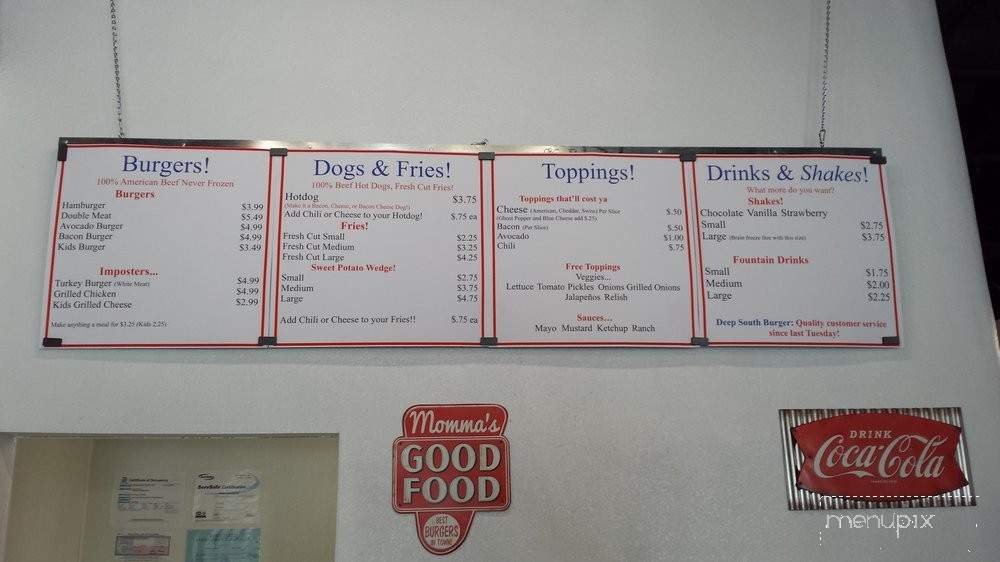 Burgers!
100% American Beef Never Frozen
Burgers
Hamburger $3.99
Double Meat $5.49
Avocado Burger $4.99
Bacon Burger $4.99
Kids Burger $3.49
Imposters...
Turkey Burger (White Meat) $4.99
Grilled Chicken $4.99
Kids Grilled Cheese $2.99
Make anything a meal for $3.25 (Kids 2.25)
Dogs & Fries!
100% Beef Hot Dogs, Fresh Cut Fries!
Hotdog $3.75
(Make it a Bacon, Cheese, or Bacon Cheese Dog!!)
Add Chili or Cheese to your Hotdog! $.75 ea
Fries!
Fresh Cut Small $2.25
Fresh Cut Medium $3.25
Fresh Cut Large $4.25
Sweet Potato Wedge!
Small $2.75
Medium $3.75
Large $4.75
Add Chili or Cheese to your Fries!! $.75 ea
Toppings!
Toppings that'll cost ya
Cheese (American, Cheddar, Swiss) Per Slice $.50
(Ghost Pepper and Blue Cheese add $.25)
Bacon (Per Slice) $.50
Avocado $1.00
Chili $.75
Free Toppings
Veggies...
Lettuce Tomato Pickles Onions Grilled Onions
Jalapeños Relish
Sauces...
Mayo Mustard Ketchup Ranch
Drinks & Shakes!
What more do you want?
Shakes!
Chocolate Vanilla Strawberry
Small $2.75
Large (Brain freeze free with this size) $3.75
Fountain Drinks
Small $1.75
Medium $2.00
Large $2.25
Deep South Burger: Quality customer service
since last Tuesday!
Momma's
GOOD
FOOD
BEST
BURGERS
IN TOWN!
DRINK
Coca-Cola
Certificate of Occupancy
ServSafe Certification
menupix